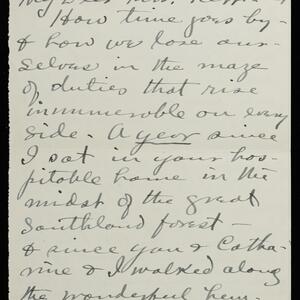 My Dear Mrs.
How time goes by -
& how we lose our-
selves in the maze
of duties that rise
innumerable on every
side. A year since
I sat in your hos-
pitable home in the
midst of the great
Southland forest -
& since you & Catha-
rine & I walked along
the wonderful